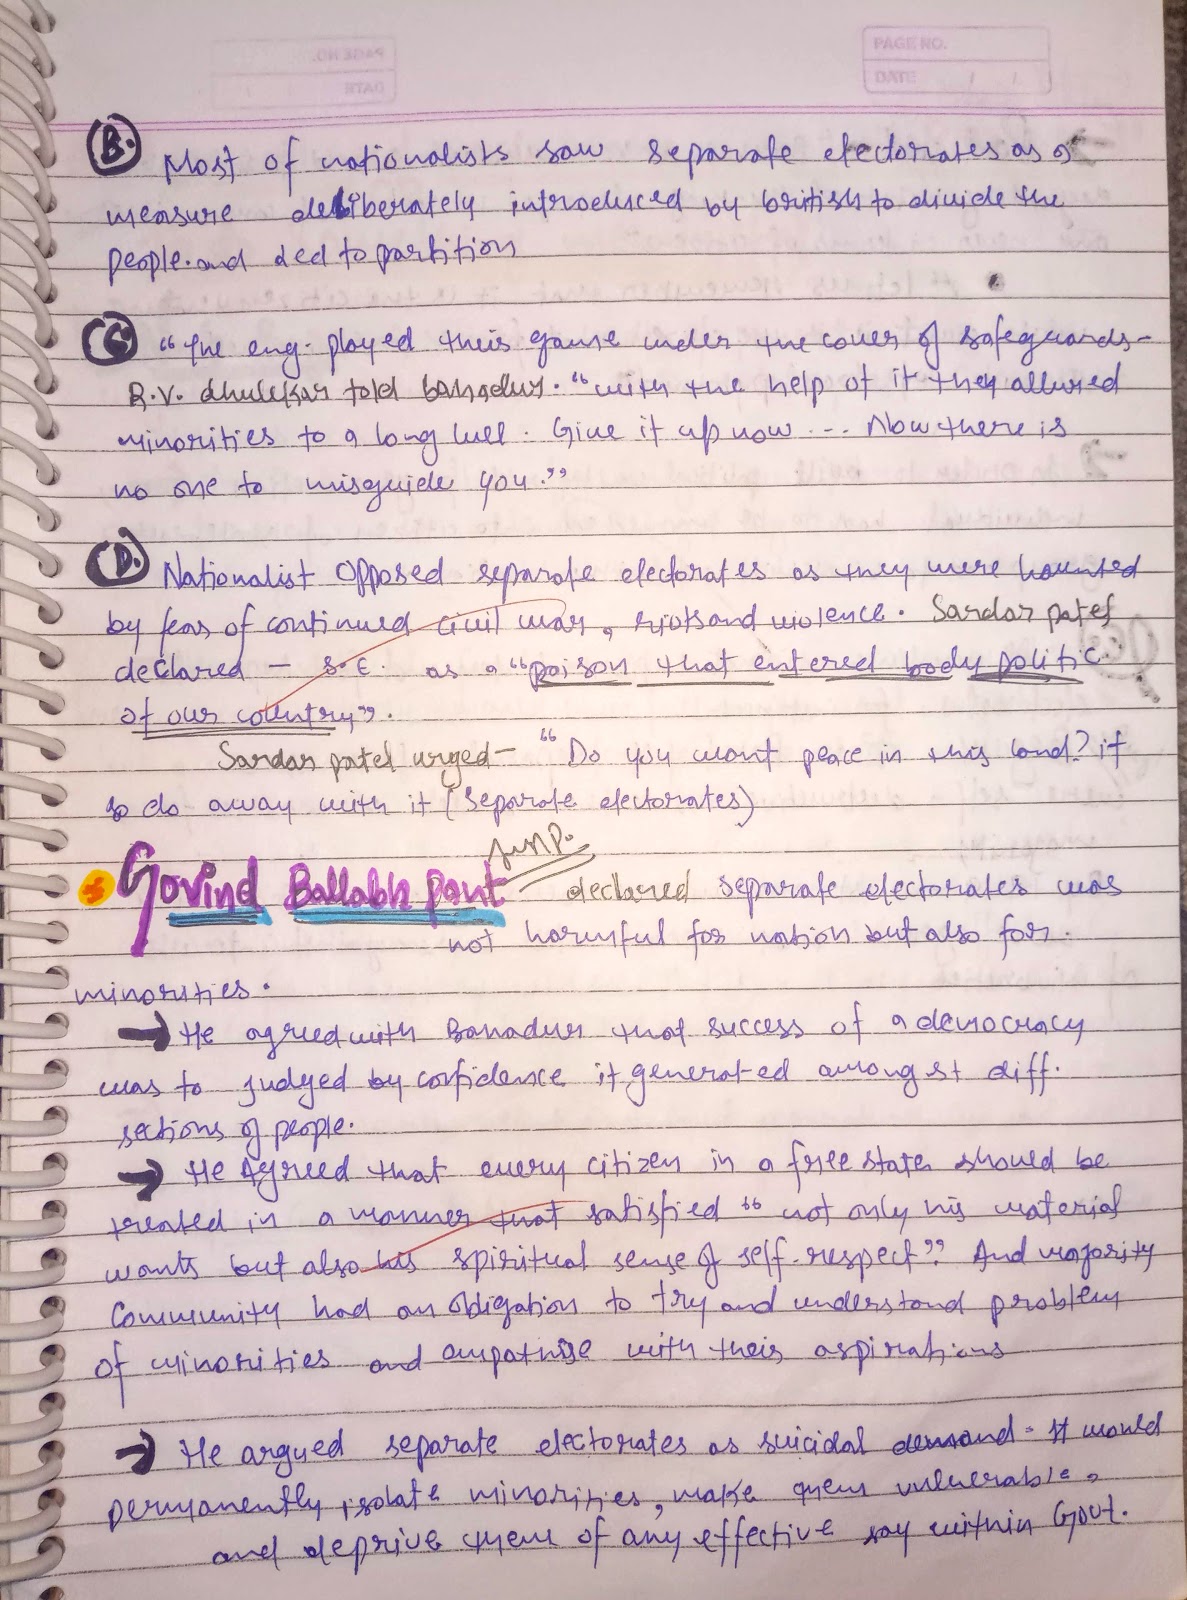 PAGE NO.
DATE / /
B. Most of nationalists saw separate electorates as a
measure deliberately introduced by british to divide the
people. and led to partition
C. "The eng. played their game under the cover of safeguards -
R.V. dhulekar told bahadur. "with the help of it they allured
minorities to a long lull. Give it up now ... Now there is
no one to misguide you."
D. Nationalist opposed separate electorates as they were haunted
by fear of continued civil war, riots and violence. Sardar patel
declared - S.E. as a "poison that entered body politic
of our country".
Sardar patel urged - "Do you want peace in this land? if
so do away with it (separate electorates)
Govind Ballabh Pant Imp. declared separate electorates was
not harmful for nation but also for
minorities.
→ He agreed with Bahadur that success of a democracy
was to judged by confidence it generated amongst diff.
sections of people.
→ He Agreed that every citizen in a free state should be
treated in a manner that satisfied "not only his material
wants but also his spiritual sense of self-respect" And majority
Community had an obligation to try and understand problem
of minorities and empathise with their aspirations
→ He argued separate electorates as suicidal demand. It would
permanently isolate minorities, make them vulnerable,
and deprive them of any effective say within Govt.